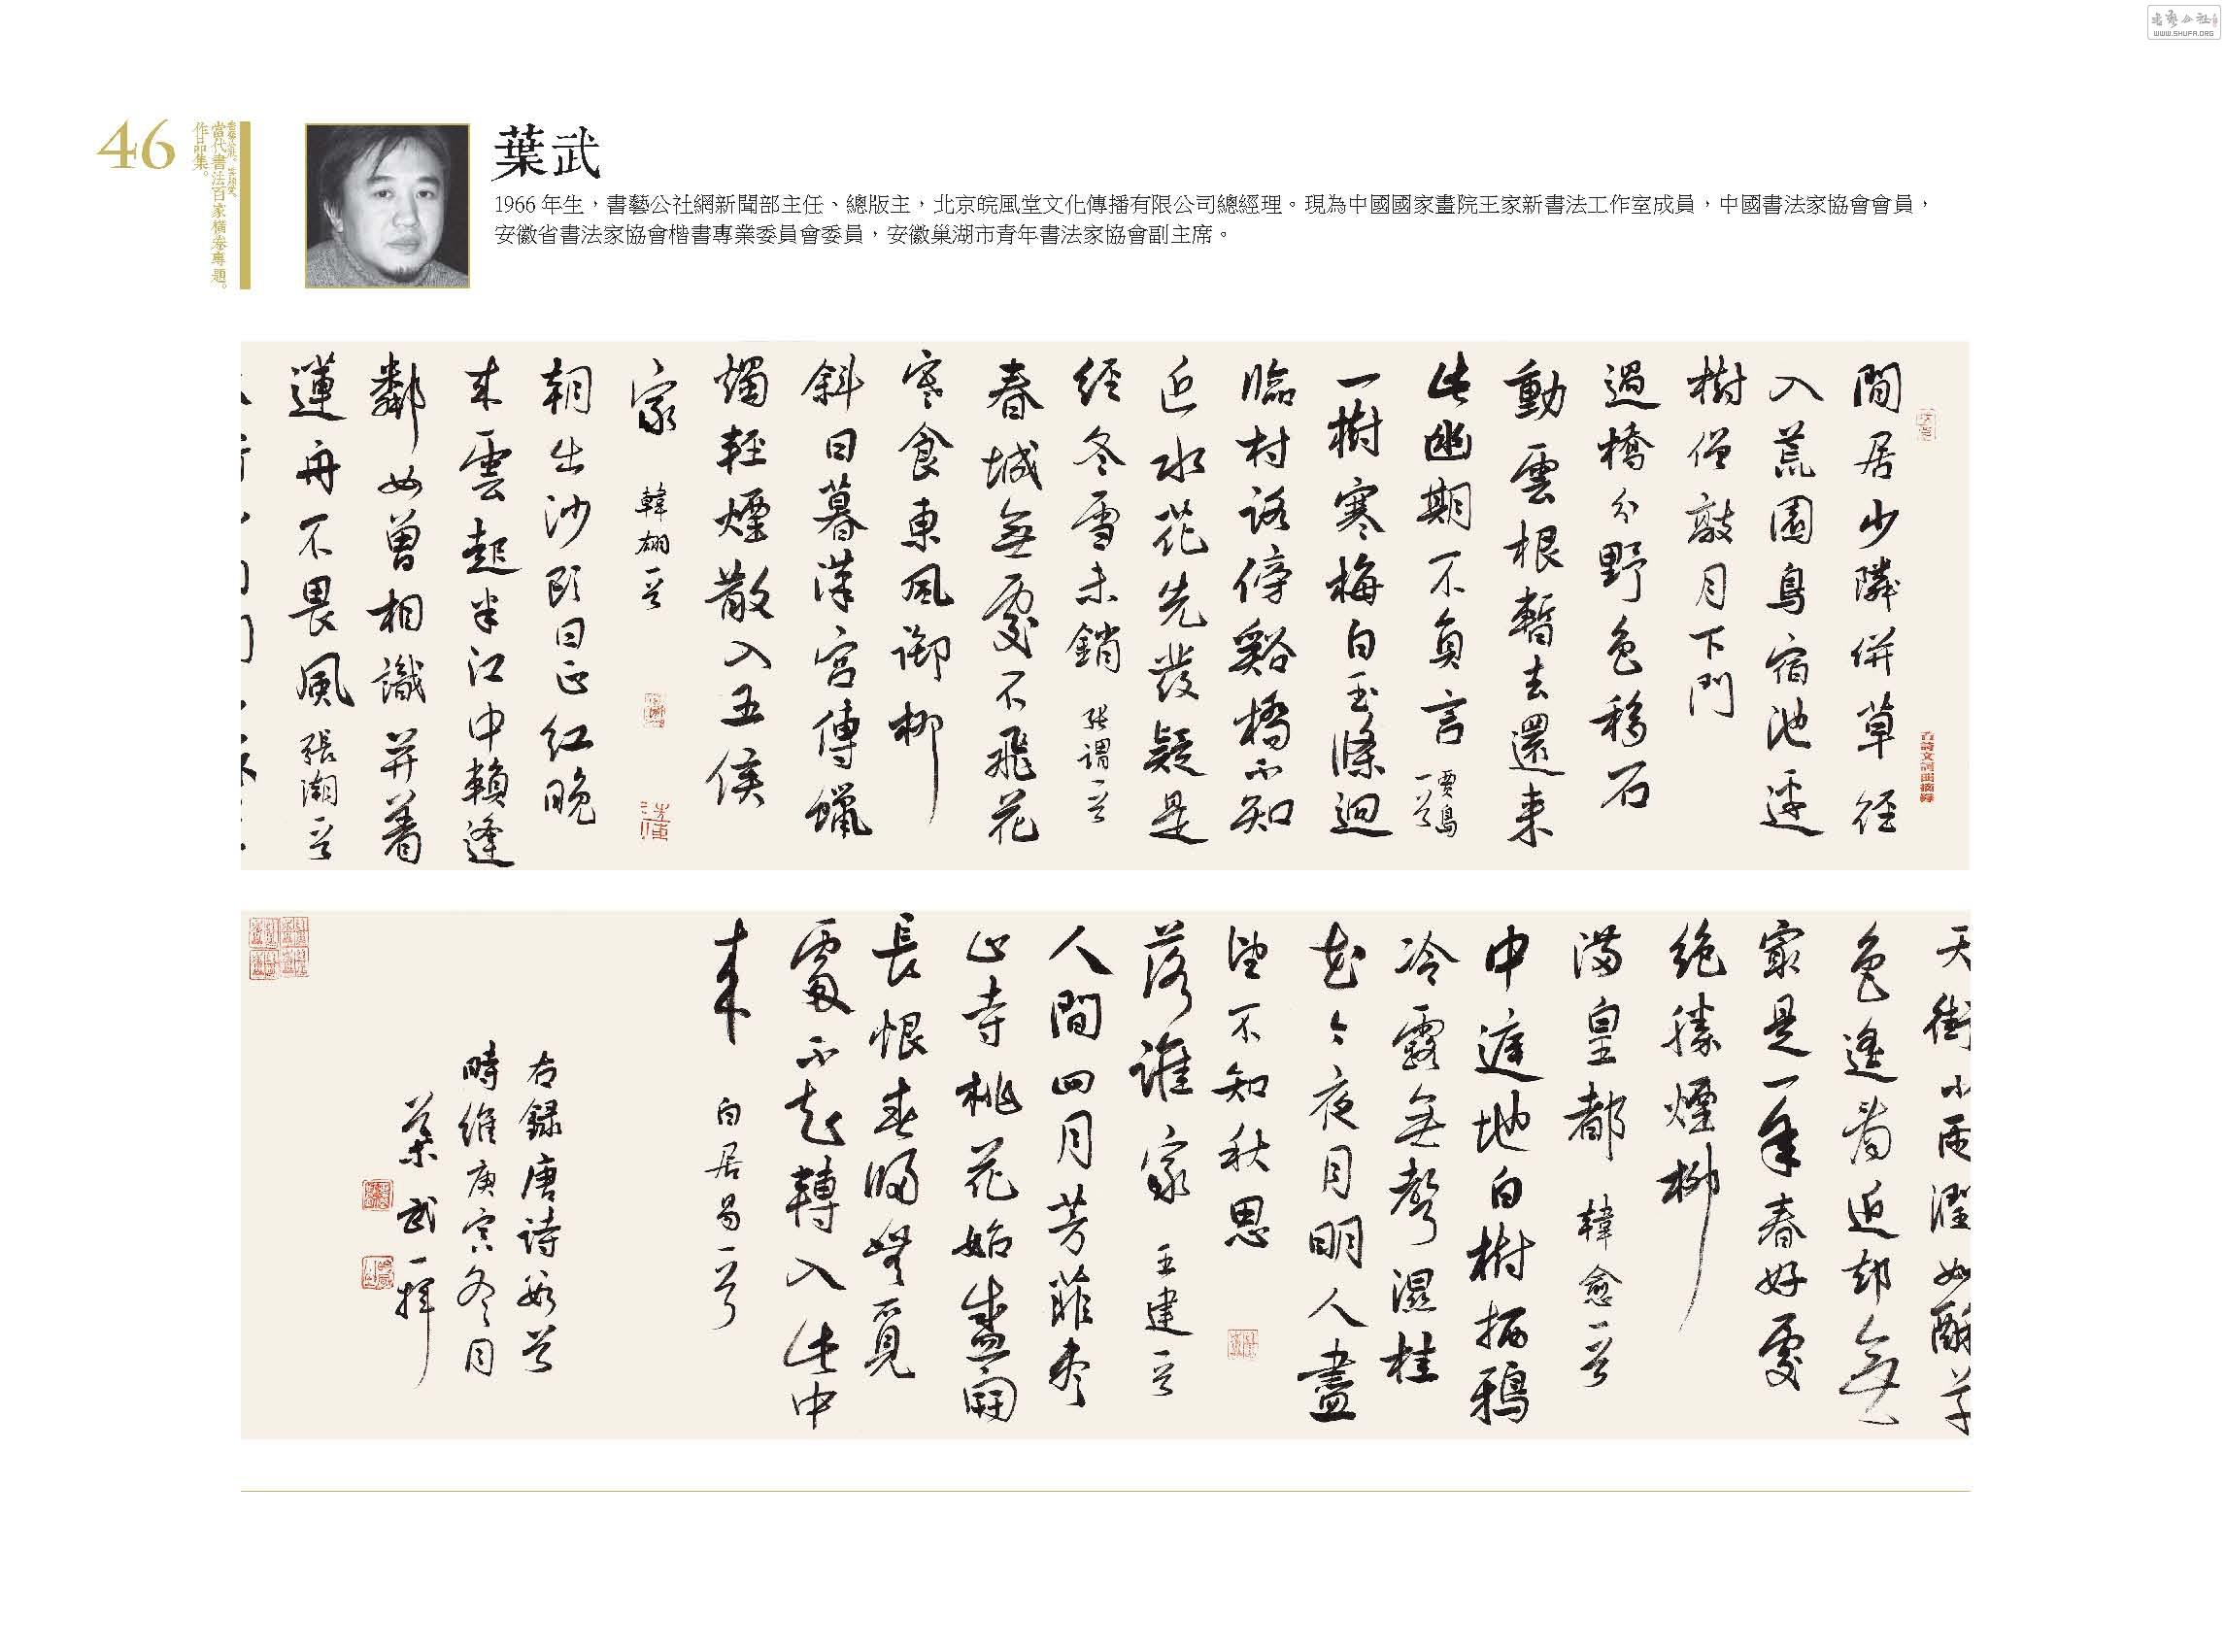 書藝公社
WWW.SHUFA.ORG
46
當代書法百家橫卷專題。
作品集。
葉武
1966 年生，書藝公社網新聞部主任、總版主，北京皖風堂文化傳播有限公司總經理。現為中國國家畫院王家新書法工作室成員，中國書法家協會會員，
安徽省書法家協會楷書專業委員會委員，安徽巢湖市青年書法家協會副主席。
古詩文詞曲摘錄
閒居少隣併草徑
入荒園鳥宿池邊
樹僧敲月下門
過橋分野色移石
動雲根暫去還來
此幽期不負言 賈島一首
一樹寒梅白玉條迴
臨村路傍谿橋不知
近水花先發疑是
經冬雪未銷 張謂一首
春城無處不飛花
寒食東風御柳
斜日暮漢宮傳蠟
燭輕煙散入五侯
家 韓翃一首
朝出沙頭日正紅晚
來雲起半江中賴逢
鄰女曾相識並著
蓮舟不畏風 張潮一首
天街小雨潤如酥草
色遙看近却無
最是一年春好處
絕勝煙柳
滿皇都 韓愈一首
中庭地白樹栖鴉
冷露無聲濕桂
花今夜月明人盡
望不知秋思
落誰家 王建一首
人間四月芳菲盡
山寺桃花始盛開
長恨春歸無覓
處不知轉入此中
來 白居易一首
右録唐詩數首
時維庚寅冬月
葉武一揮